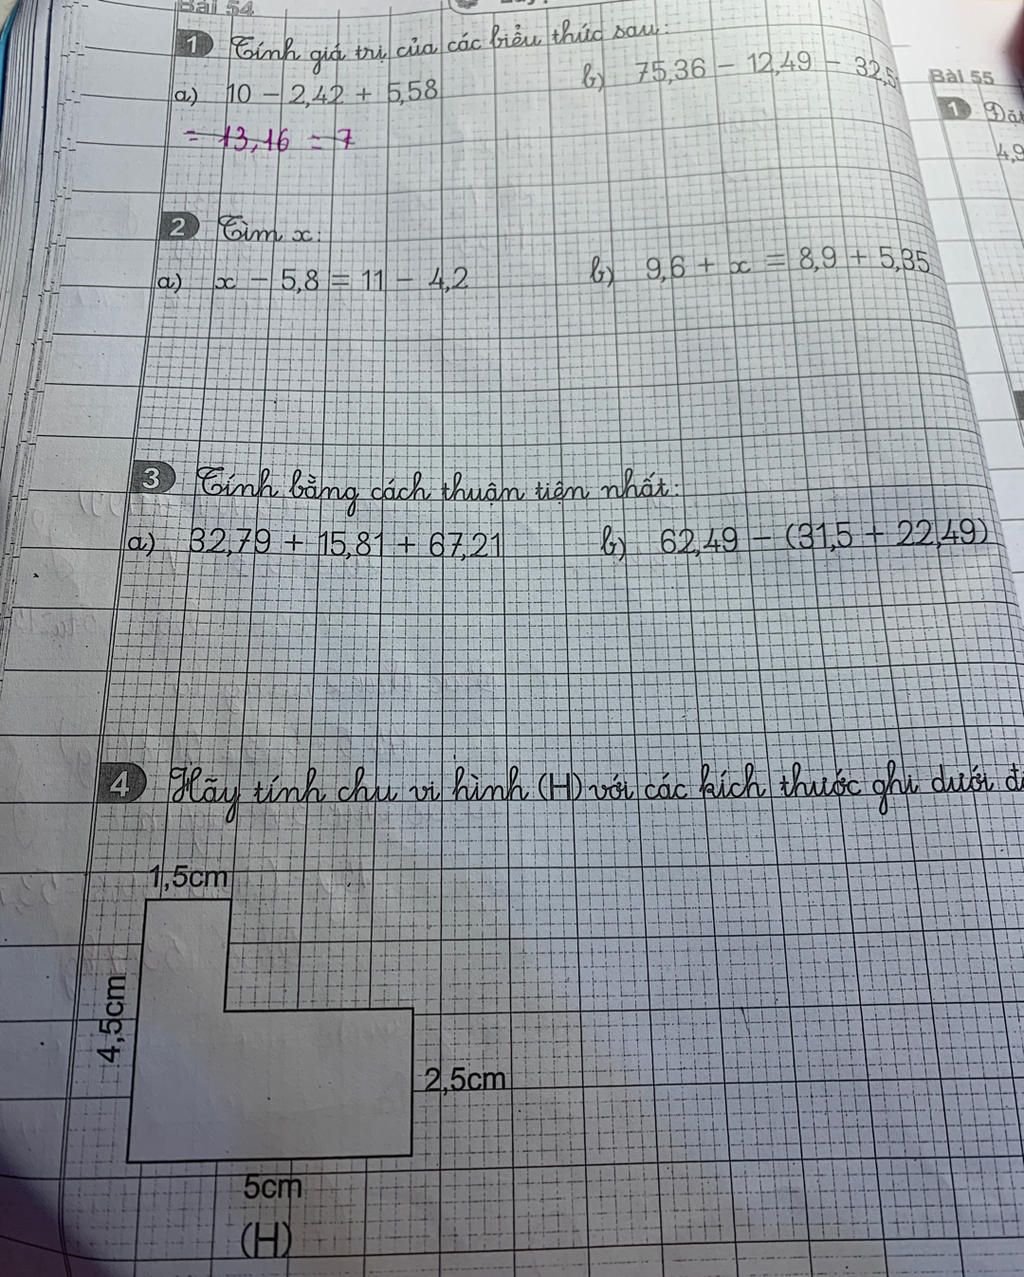 Bài 54
1 Tính giá trị của các biểu thức sau:
a) 10 - 2,42 + 5,58
b) 75,36 - 12,49 - 32,5
= 13,16 = 7
2 Tìm x:
a) x - 5,8 = 11 - 4,2
b) 9,6 + x = 8,9 + 5,35
3 Tính bằng cách thuận tiện nhất:
a) 32,79 + 15,81 + 67,21
b) 62,49 - (31,5 + 22,49)
4 Hãy tính chu vi hình (H) với các kích thước ghi dưới
1,5cm
4,5cm
2,5cm
5cm
(H)
Bài 55
1
4,9